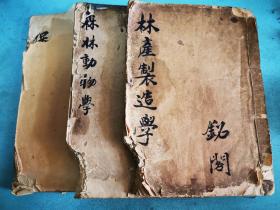 林產製造學
銘閣
森林動物學